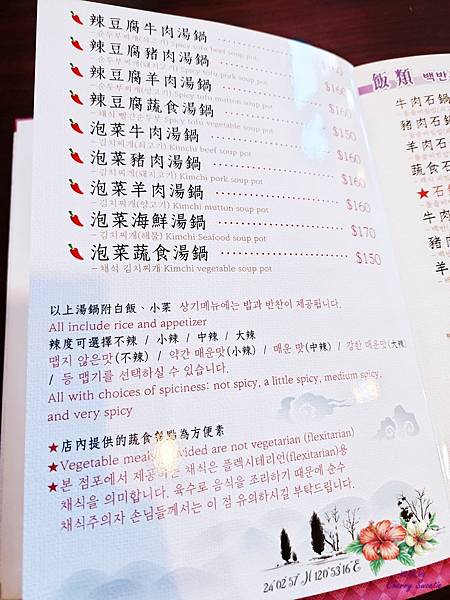 辣豆腐牛肉湯鍋
- 순두부찌개(쇠고기) Spicy tofu beef soup pot
辣豆腐豬肉湯鍋
- 순두부찌개(돼지고기) Spicy tofu pork soup pot
辣豆腐羊肉湯鍋 $160
- 순두부찌개(양고기) Spicy tofu mutton soup pot
辣豆腐蔬食湯鍋 $160
- 채식 빨간순두부 Spicy tofu vegetable soup pot
泡菜牛肉湯鍋 $150
- 김치찌개(쇠고기) Kimchi beef soup pot
泡菜豬肉湯鍋 $160
- 김치찌개(돼지고기) Kimchi pork soup pot
泡菜羊肉湯鍋 $160
- 김치찌개(양고기) Kimchi mutton soup pot
泡菜海鮮湯鍋 $170
- 김치찌개(해물) Kimchi Seafood soup pot
泡菜蔬食湯鍋 $150
- 채식 김치찌개 Kimchi vegetable soup pot
以上湯鍋附白飯、小菜 상기메뉴에는 밥과 반찬이 제공됩니다.
All include rice and appetizer
辣度可選擇不辣 / 小辣 / 中辣 / 大辣
맵지 않은맛(不辣) / 약간 매운맛(小辣) / 매운 맛(中辣) / 강한 매운맛(大辣)
/ 등 맵기를 선택하실 수 있습니다.
All with choices of spiciness: not spicy, a little spicy, medium spicy,
and very spicy
★店內提供的蔬食餐點為方便素
★Vegetable meals provided are not vegetarian (flexitarian)
★본 점포에서 제공하는 채식은 플렉시테리언(flexitarian)용
채식을 의미합니다. 육수로 음식을 조리하기 때문에 순수
채식주의자 손님들께서는 이 점 유의하시길 부탁드립니다.
24°02'57" N 120°53'16"E
飯類 백반
牛肉石鍋
豬肉石鍋
羊肉石
蔬食石
★石
牛肉
豬肉
羊
Cherry Sweetie